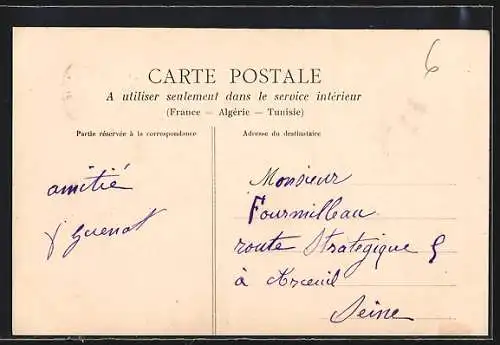 6
CARTE POSTALE
A utiliser seulement dans le service intérieur
(France — Algérie — Tunisie)
Partie réservée à la correspondance
Adresse du destinataire
amitié
J Guenot
Monsieur
Fourmilleau
route Strategique 5
à Arcueil
Seine